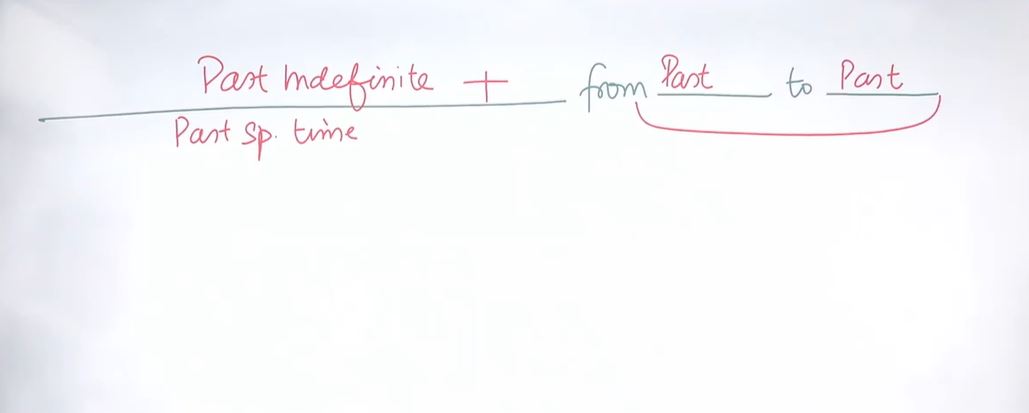 Past Indefinite + from Past to Past
Past sp. time